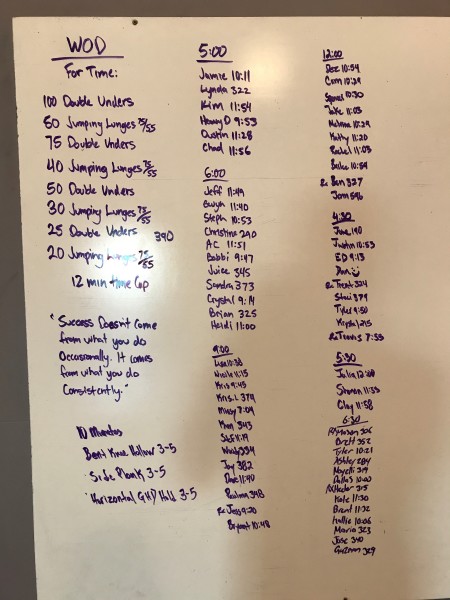 WOD
For Time:
100 Double Unders
50 Jumping Lunges 75/55
75 Double Unders
40 Jumping Lunges 75/55
50 Double Unders
30 Jumping Lunges 75/55
25 Double Unders 390
20 Jumping Lunges 75/55
12 min time Cap
"Success Doesn't come
from what you do
Occasionally. It comes
from what you do
Consistently."
10 Minutes
Bent Knee Hollow 3-5
Side Plank 3-5
Horizontal GHD Hold 3-5
5:00
Jamie 10:11
Lynda 322
Kim 11:54
Henry D 9:53
Dustin 11:28
Chad 11:56
6:00
Jeff 11:49
Gwyn 11:40
Steph 10:53
Christine 290
A.C 11:51
Bobbi 9:47
Juice 345
Sandra 373
Crystal 9:14
Brian 325
Heidi 11:00
9:00
Lisa 10:38
Nicole 11:15
Kris 9:45
Kris.L 374
Missy 8:09
Knox 343
Stef 11:19
Wendy 334
Joy 382
Dave 11:40
Paulina 348
Rx Jess 9:20
Bryant 10:48
12:00
Dez 10:54
Cam 10:29
10:30
Jake 11:03
Melanie 10:29
Kathy 11:20
Rachel 11:03
10:59
Rx Ben 327
Jom 596
4:30
June 190
Justin 10:53
ED 9:13
Rx Trent 324
Staci 379
Tyler 9:50
Krystal 215
Rx Travis 7:55
5:30
Julia
Shannon 11:35
Clay 11:58
6:30
306
Brett 352
Tyler 10:21
Ashley 284
Noyelli 319
Dallas 10:00
Rx Hector 315
Kate 11:30
Brent 11:32
Hallie 10:06
Maria 323
Jose 340
329